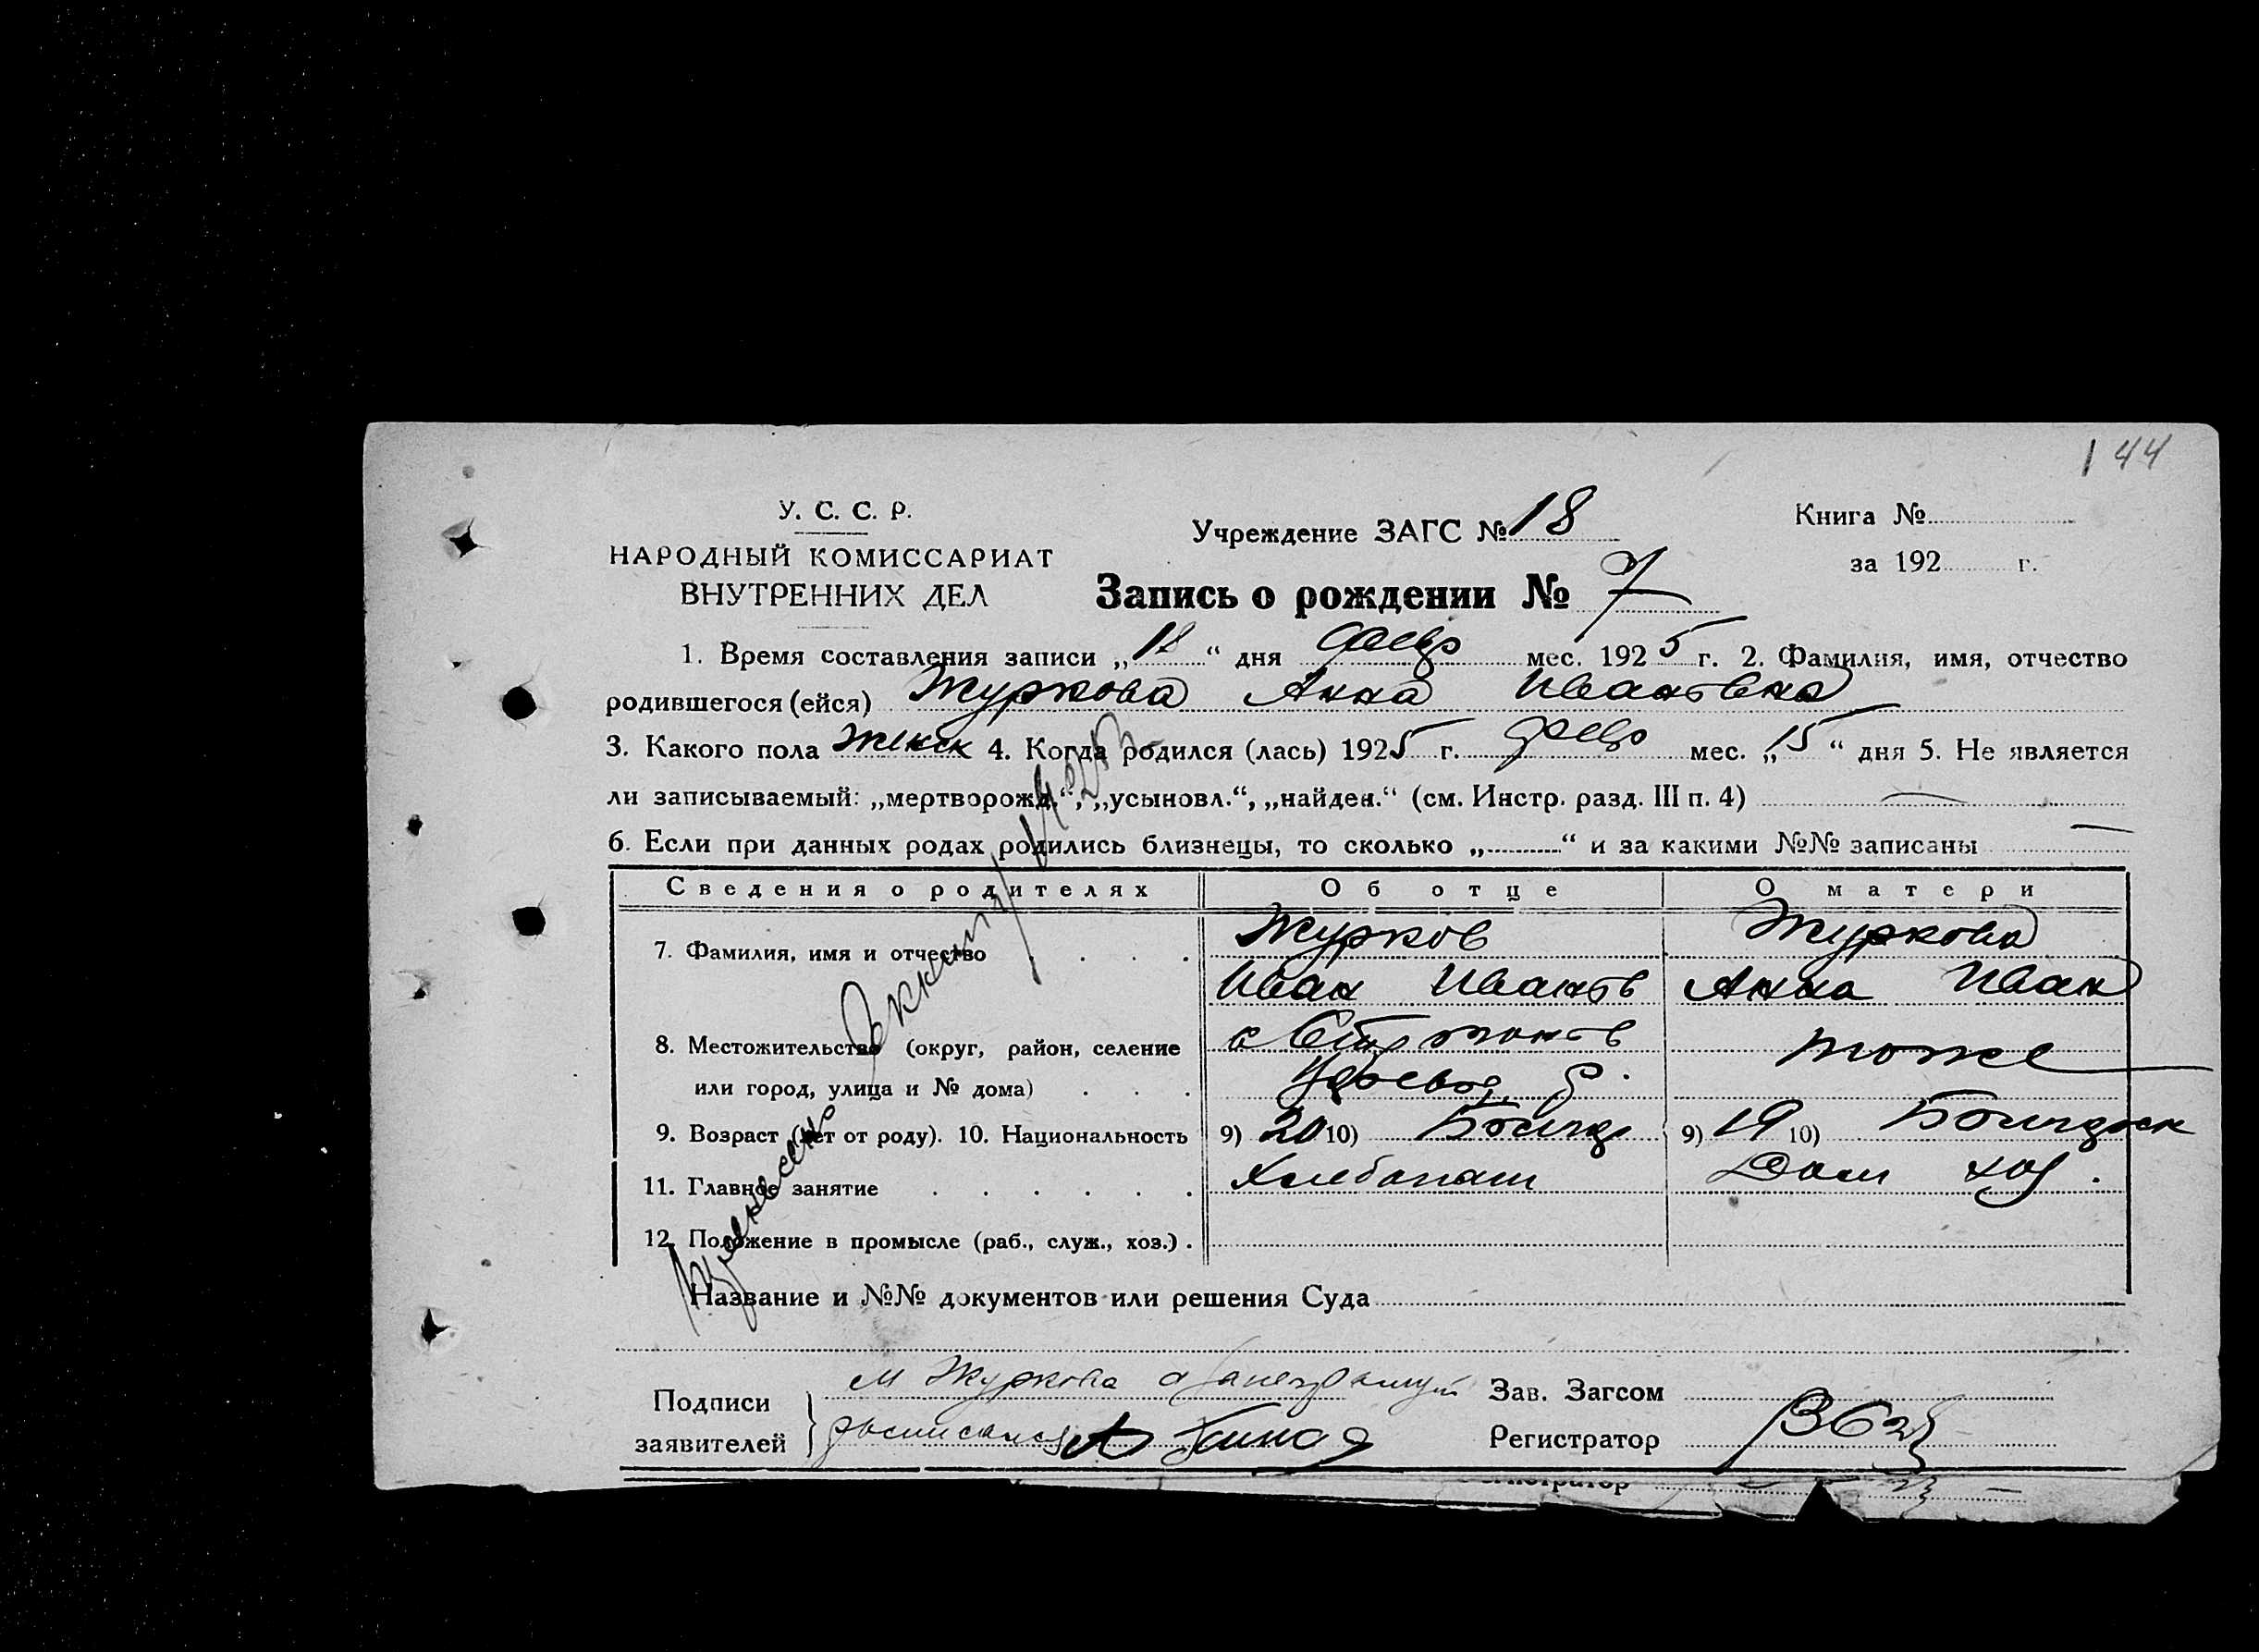 144
У. С. С. Р.
НАРОДНЫЙ КОМИССАРИАТ
ВНУТРЕННИХ ДЕЛ
Учреждение ЗАГС № 18
Книга №
за 192 г.
Запись о рождении № 7
1. Время составления записи „18“ дня февр мес. 1925 г. 2. Фамилия, имя, отчество
родившегося (ейся) Журкова Анна Ивановна
3. Какого пола женск 4. Когда родился (лась) 1925 г. февр мес. „15“ дня 5. Не является
ли записываемый: „мертворожд.“, „усыновл.“, „найден.“ (см. Инстр. разд. III п. 4) —
6. Если при данных родах родились близнецы, то сколько „ “ и за какими №№ записаны —
Сведения о родителях Об отце О матери
7. Фамилия, имя и отчество Журков Журкова
Иван Иванов Анна Иван
8. Местожительство (округ, район, селение с тоже
или город, улица и № дома)
9. Возраст (лет от роду). 10. Национальность 9) 20 10) 9) 19 10)
11. Главное занятие Хлебопаш Дом хоз.
12. Положение в промысле (раб., служ., хоз.)
Название и №№ документов или решения Суда
Подписи
заявителей
М Журкова а
Зав. Загсом
Регистратор